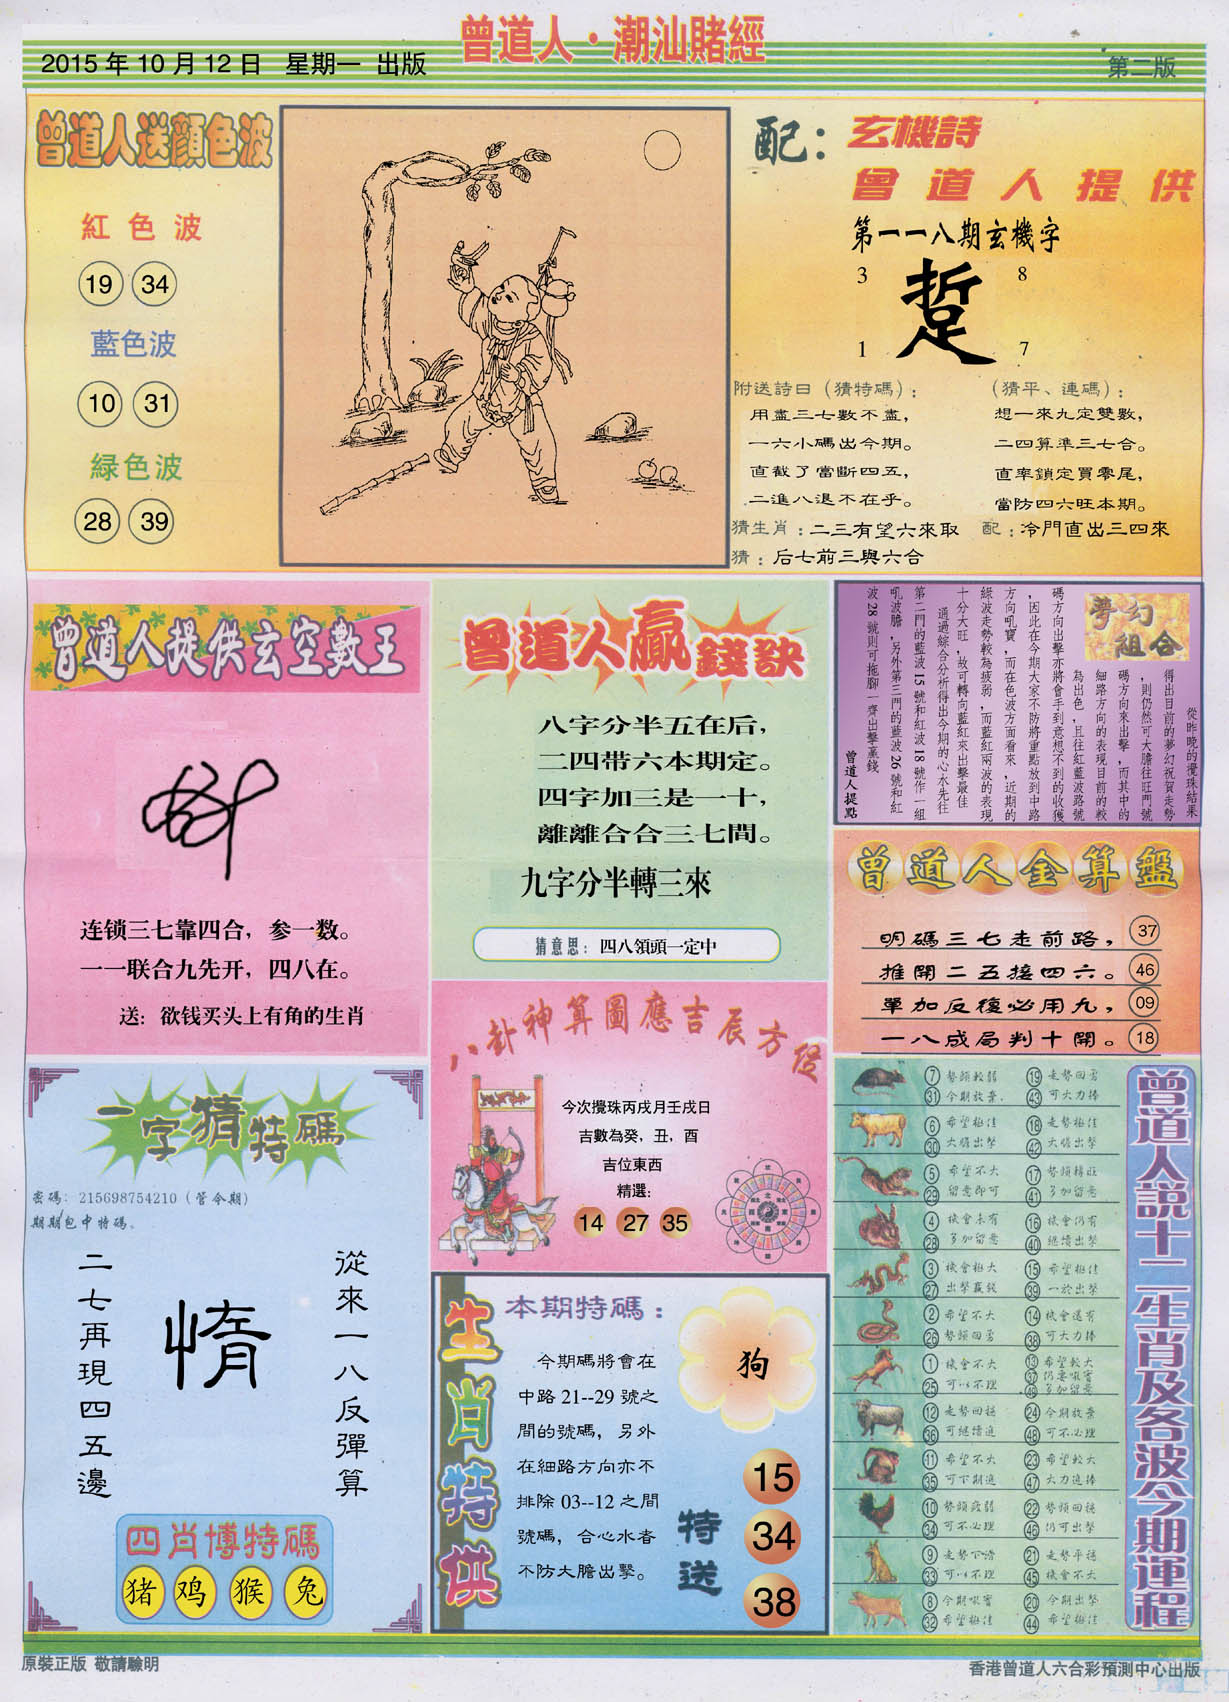 曾道人·潮汕賭經
2015年10月12日 星期一 出版
第二版
曾道人送顏色波
紅色波
19 34
藍色波
10 31
緑色波
28 39
配：
玄機詩
曾道人提供
第一一八期玄機字
3 8
踅
1 7
附送詩曰（猜特碼）：
用盡三七數不盡，
一六小碼出今期。
直截了當斷四五，
二進八退不在乎。
（猜平、連碼）：
想一來九定雙數，
二四算準三七合。
直率鎖定買零尾，
當防四六旺本期。
猜生肖：二三有望六來取
配：冷門直出三四來
猜：后七前三與六合
曾道人提供玄空數王
连锁三七靠四合，参一数。
一一联合九先开，四八在。
送：欲钱买头上有角的生肖
曾道人贏錢訣
八字分半五在后，
二四带六本期定。
四字加三是一十，
離離合合三七間。
九字分半轉三來
猜意思：四八領頭一定中
夢幻組合
從昨晚的攪珠結果
得出目前的夢幻祝賀走勢
，則仍然可大膽往旺門號
碼方向來出擊，而其中的
細路方向的表現目前的較
為出色，且往紅藍波路號
碼方向出擊亦將會手到意想不到的收獲
，因此在今期大家不防將重點放到中路
方向吼寶，而在色波方面看來，近期的
綠波走勢較為疲弱，而藍紅兩波的表現
十分大旺，故可轉向藍紅來出擊最佳
通過綜合分析得出今期的心水先往
第二門的藍波15號和紅波18號作一組
吼波膽，另外第三門的藍波26號和紅
波28號則可拖腳一齊出擊贏錢
曾道人提點
曾道人金算盤
明碼三七走前路， 37
推開二五接四六。 46
單加反復必用九， 09
一八成局判十開。 18
八卦神算圖應吉辰方位
今次攪珠丙戌月壬戌日
吉數為癸，丑，酉
吉位東西
精選：
14 27 35
一字猜特碼
密碼：215698754210（管今期）
期期包中特碼。
從來一八反彈算
惰
二七再現四五邊
四肖博特碼
猪 鸡 猴 兔
生肖特供
本期特碼：
今期碼將會在
中路21--29號之
間的號碼，另外
在細路方向亦不
排除03--12之間
號碼，合心水者
不防大膽出擊。
狗
特送
15
34
38
曾道人説十二生肖及各波今期運程
7 勢頭較弱 19 走勢回勇
31 今期放棄 43 可大力捧
6 希望極佳 18 走勢極佳
30 大膽出擊 42 大膽出擊
5 希望不大 17 勢頭轉旺
29 留意即可 41 多加留意
4 機會未有 16 機會仍有
28 多加留意 40 繼續出擊
3 機會極大 15 希望極佳
27 出擊贏錢 39 一於出擊
2 希望不大 14 機會還有
26 勢頭回勇 38 可大力捧
1 機會不大 13 希望較大
25 可以不理 37 仍要吼實
49 多加留意
12 走勢回穩 24 今期放棄
36 可繼續追 48 可不必理
11 希望不大 23 希望較大
35 可下期追 47 大力追捧
10 勢頭疲弱 22 勢頭回穩
34 可不必理 46 仍可出擊
9 走勢下滑 21 走勢平穩
33 可以不理 45 機會不大
8 今期吼實 20 今期出擊
32 希望極佳 44 希望極佳
原裝正版 敬請驗明
香港曾道人六合彩預測中心出版